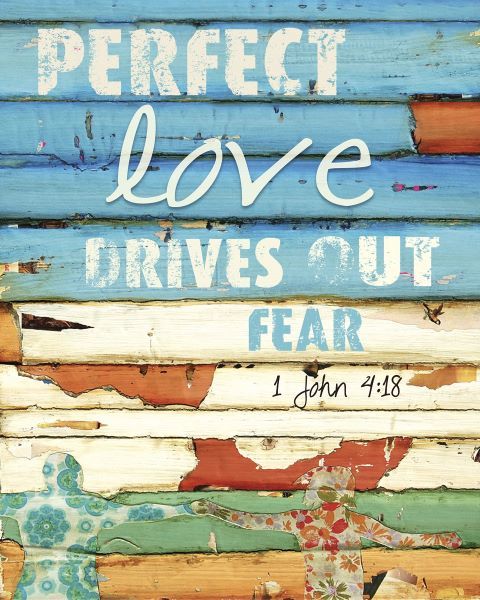 PERFECT
love
DRIVES OUT
FEAR
1 John 4:18